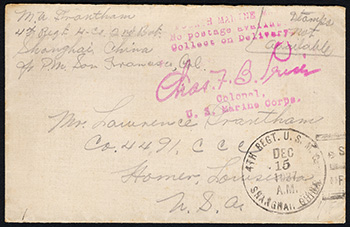 M.A. Grantham
4th Regt. 4-Co. 2nd Bat.
Shanghai, China
c/o P.M. San Francisco, Cal.
MARINE
No postage available
Collect on Delivery
Stamps
not
available
Chas. F. B. Price
Colonel,
U. S. Marine Corps.
Mr. Lawrence Grantham
Co. 4491, C C C
Homer, Louisiana
U.S.A.
4TH REGT. U.S.
DEC
15
A.M.
SHANGHAI, CHINA